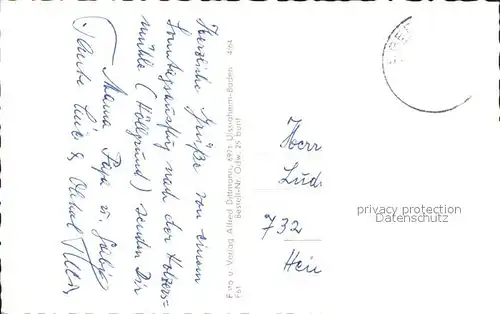 Herzliche Grüße von einem
Sonntagsausflug nach der Holzers=
mühle (Höllgrund) senden Dir
Mama Papa u.
Tante
Foto u. Verlag Alfred Dittmann, 6971 Uissigheim-Baden
Bestell-Nr. Odw. 25 bunt
Herr
Lud
732
Hei
privacy protection
Datenschutz